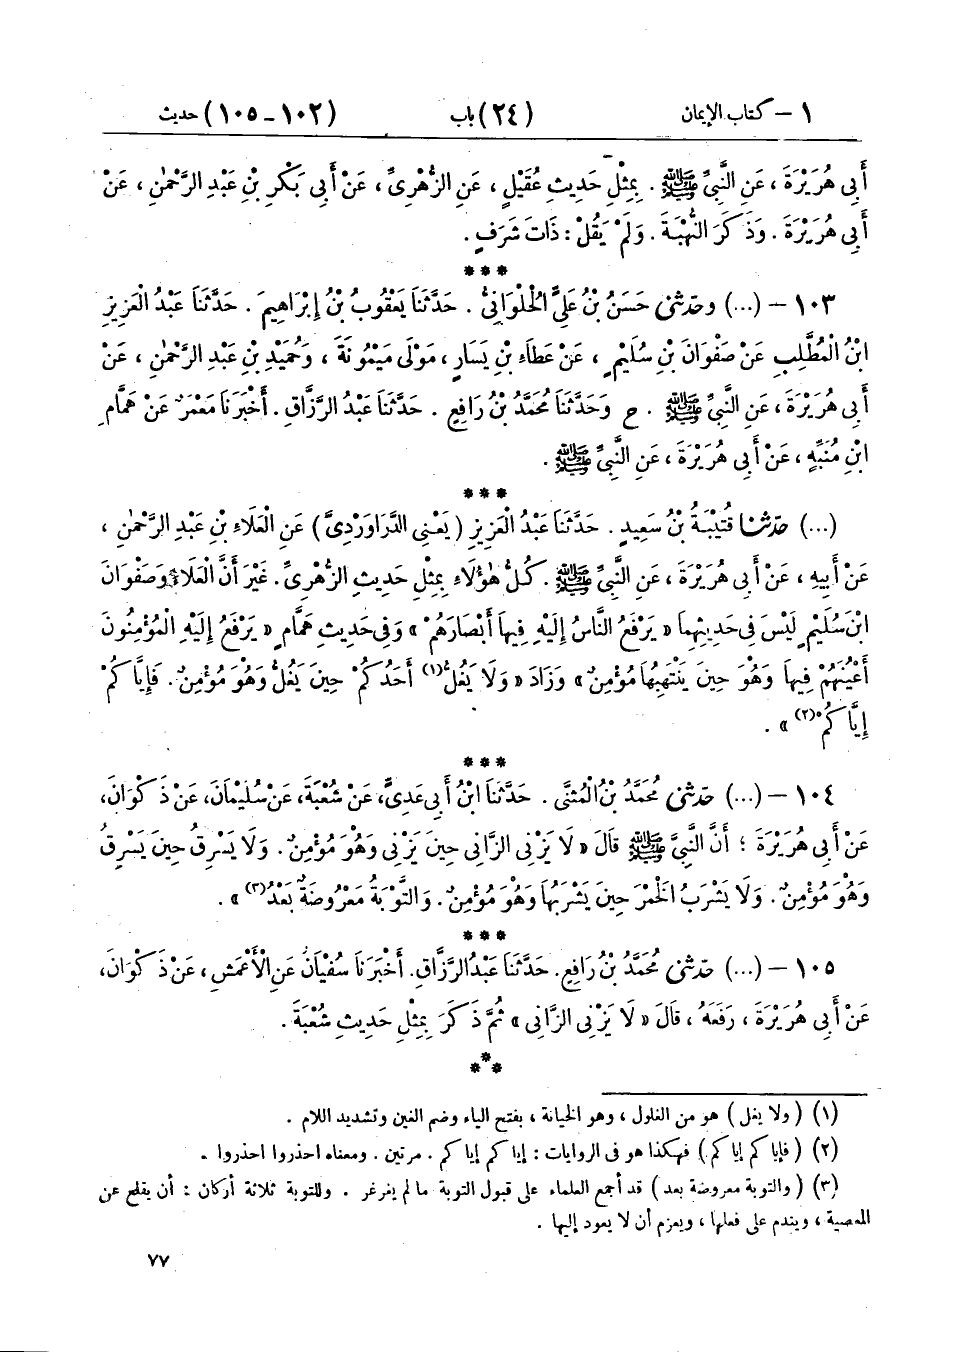 ١ – كتاب الإيمان (٢٤) باب (١٠٢–١٠٥) حديث
أَبِي هُرَيْرَةَ ، عَنِ النَّبِيِّ ﷺ . بِمِثْلِ حَدِيثِ عُقَيْلٍ ، عَنِ الزُّهْرِيِّ ، عَنْ أَبِي بَكْرِ بْنِ عَبْدِ الرَّحْمٰنِ ، عَنْ
أَبِي هُرَيْرَةَ . وَذَكَرَ النُّهْبَةَ . وَلَمْ يَقُلْ : ذَاتَ شَرَفٍ .
***
١٠٣ – (...) وحَدَّثَنِي حَسَنُ بْنُ عَلِيٍّ الْحُلْوَانِيُّ . حَدَّثَنَا يَعْقُوبُ بْنُ إِبْرَاهِيمَ . حَدَّثَنَا عَبْدُ الْعَزِيزِ
ابْنُ الْمُطَّلِبِ عَنْ صَفْوَانَ بْنِ سُلَيْمٍ ، عَنْ عَطَاءِ بْنِ يَسَارٍ ، مَوْلَى مَيْمُونَةَ ، وَحُمَيْدِ بْنِ عَبْدِ الرَّحْمٰنِ ، عَنْ
أَبِي هُرَيْرَةَ ، عَنِ النَّبِيِّ ﷺ . ح وَحَدَّثَنَا مُحَمَّدُ بْنُ رَافِعٍ . حَدَّثَنَا عَبْدُ الرَّزَّاقِ . أَخْبَرَنَا مَعْمَرٌ عَنْ هَمَّامِ
ابْنِ مُنَبِّهٍ ، عَنْ أَبِي هُرَيْرَةَ ، عَنِ النَّبِيِّ ﷺ .
***
(...) حَدَّثَنَا قُتَيْبَةُ بْنُ سَعِيدٍ . حَدَّثَنَا عَبْدُ الْعَزِيزِ (يَعْنِي الدَّرَاوَرْدِيَّ) عَنِ الْعَلَاءِ بْنِ عَبْدِ الرَّحْمٰنِ ،
عَنْ أَبِيهِ ، عَنْ أَبِي هُرَيْرَةَ ، عَنِ النَّبِيِّ ﷺ . كُلُّ هٰؤُلَاءِ بِمِثْلِ حَدِيثِ الزُّهْرِيِّ . غَيْرَ أَنَّ الْعَلَاءَ وَصَفْوَانَ
ابْنَ سُلَيْمٍ لَيْسَ فِي حَدِيثِهِمَا « يَرْفَعُ النَّاسُ إِلَيْهِ فِيهَا أَبْصَارَهُمْ » وَفِي حَدِيثِ هَمَّامٍ « يَرْفَعُ إِلَيْهِ الْمُؤْمِنُونَ
أَعْيُنَهُمْ فِيهَا وَهُوَ حِينَ يَنْتَهِبُهَا مُؤْمِنٌ » وَزَادَ « وَلَا يَغُلُّ (١) أَحَدُكُمْ حِينَ يَغُلُّ وَهُوَ مُؤْمِنٌ . فَإِيَّاكُمْ
إِيَّاكُمْ (٢) » .
***
١٠٤ – (...) حَدَّثَنِي مُحَمَّدُ بْنُ الْمُثَنَّى . حَدَّثَنَا ابْنُ أَبِي عَدِيٍّ ، عَنْ شُعْبَةَ ، عَنْ سُلَيْمَانَ ، عَنْ ذَكْوَانَ ،
عَنْ أَبِي هُرَيْرَةَ ؛ أَنَّ النَّبِيَّ ﷺ قَالَ « لَا يَزْنِي الزَّانِي حِينَ يَزْنِي وَهُوَ مُؤْمِنٌ . وَلَا يَسْرِقُ حِينَ يَسْرِقُ
وَهُوَ مُؤْمِنٌ . وَلَا يَشْرَبُ الْخَمْرَ حِينَ يَشْرَبُهَا وَهُوَ مُؤْمِنٌ . وَالتَّوْبَةُ مَعْرُوضَةٌ بَعْدُ (٣) » .
***
١٠٥ – (...) حَدَّثَنِي مُحَمَّدُ بْنُ رَافِعٍ . حَدَّثَنَا عَبْدُ الرَّزَّاقِ . أَخْبَرَنَا سُفْيَانُ عَنِ الْأَعْمَشِ ، عَنْ ذَكْوَانَ ،
عَنْ أَبِي هُرَيْرَةَ ، رَفَعَهُ ، قَالَ « لَا يَزْنِي الزَّانِي » ثُمَّ ذَكَرَ بِمِثْلِ حَدِيثِ شُعْبَةَ .
***
(١) (ولا يغل) هو من الغلول ، وهو الخيانة ، بفتح الياء وضم الغين وتشديد اللام .
(٢) (فإياكم إياكم) فهكذا هو في الروايات : إياكم إياكم . مرتين . ومعناه احذروا احذروا .
(٣) (والتوبة معروضة بعد) قد أجمع العلماء على قبول التوبة ما لم يغرغر . وللتوبة ثلاثة أركان : أن يقلع عن
المعصية ، ويندم على فعلها ، ويعزم أن لا يعود إليها .
٧٧